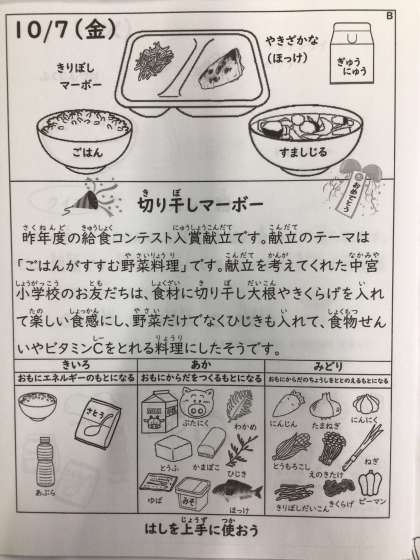 B
10/7(金)
きりぼし
マーボー
やきざかな
(ほっけ)
ぎゅう
にゅう
ごはん
すましじる
切り干しマーボー
おめでとう
昨年度の給食コンテスト入賞献立です。献立のテーマは
「ごはんがすすむ野菜料理」です。献立を考えてくれた中宮
小学校のお友だちは、食材に切り干し大根やきくらげを入れ
て楽しい食感にし、野菜だけでなくひじきも入れて、食物せん
いやビタミンCをとれる料理にしたそうです。
きいろ
おもにエネルギーのもとになる
さとう
あぶら
あか
おもにからだをつくるもとになる
ぶたにく
わかめ
とうふ
かまぼこ
ひじき
ゆば
みそ
ほっけ
みどり
おもにからだのちょうしをととのえるもとになる
にんじん
たまねぎ
にんにく
とうもろこし
えのきたけ
ねぎ
きりぼしだいこん
きくらげ
ピーマン
はしを上手に使おう